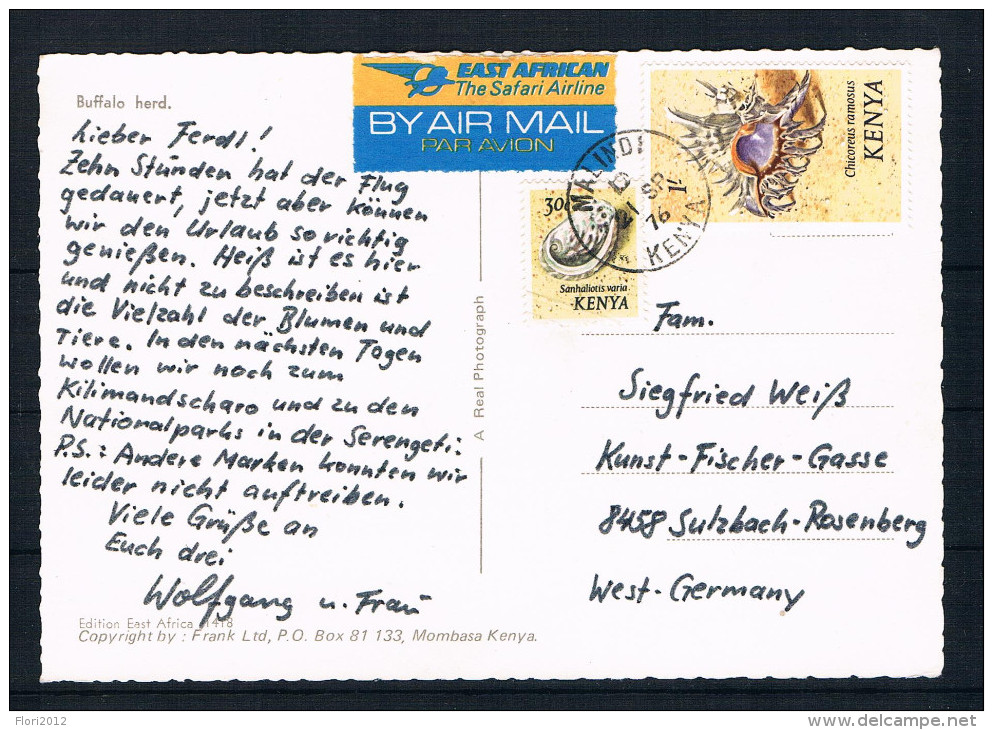 Buffalo herd.
Lieber Ferdl!
Zehn Stunden hat der Flug
gedauert, jetzt aber können
wir den Urlaub so richtig
genießen. Heiß ist es hier
und nicht zu beschreiben ist
die Vielzahl der Blumen und
Tiere. In den nächsten Tagen
wollen wir noch zum
Kilimandscharo und zu den
Nationalparks in der Serengeti.
P.S.: Andere Marken konnten wir
leider nicht auftreiben.
Viele Grüße an
Euch drei
Wolfgang u. Frau
Edition East Africa 1418
Copyright by : Frank Ltd, P.O. Box 81 133, Mombasa Kenya.
A Real Photograph
EAST AFRICAN
The Safari Airline
BY AIR MAIL
PAR AVION
30c
Sanhaliotis varia
KENYA
1/-
Chicoreus ramosus
KENYA
MALINDI
21 SP
76
KENYA
Fam.
Siegfried Weiß
Kunst-Fischer-Gasse
8458 Sulzbach-Rosenberg
West-Germany
Flori2012
delcampe.net